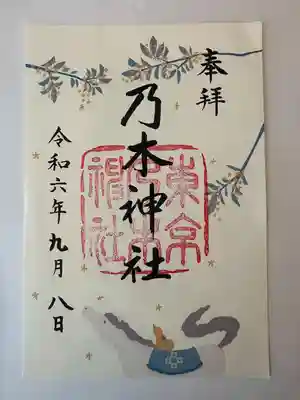 奉拝
乃木神社
令和六年九月八日
東京
乃木
神社